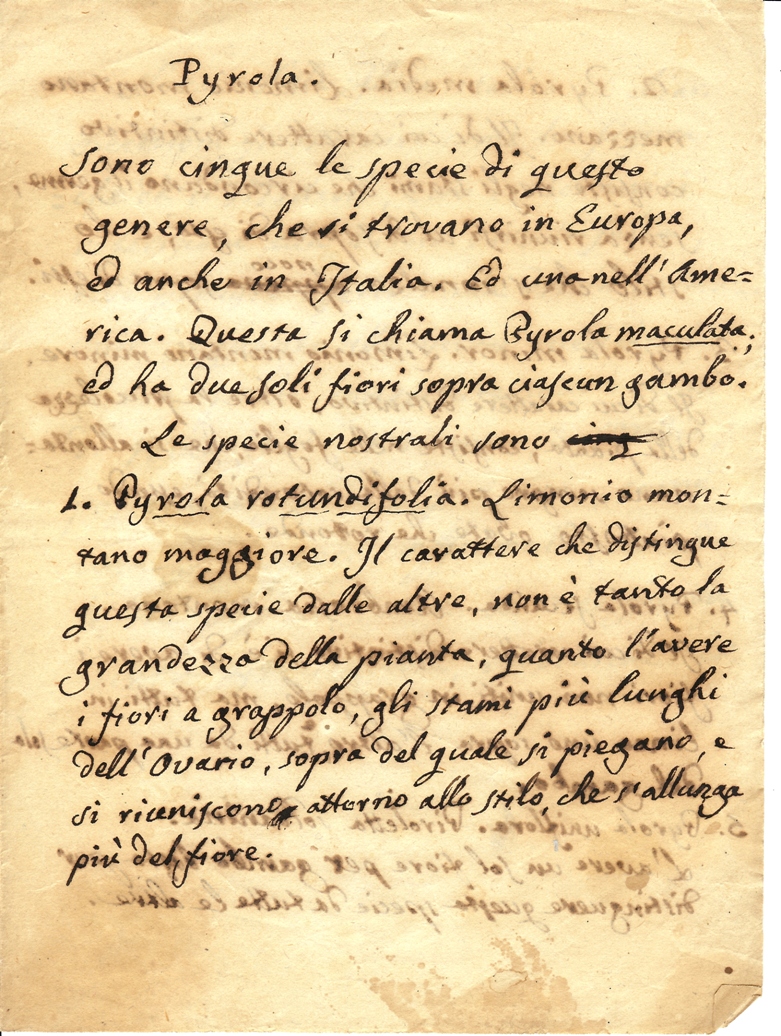 Pyrola.
Sono cinque le specie di questo
genere, che si trovano in Europa,
ed anche in Italia. Ed una nell'Ame=
rica. Questa si chiama Pyrola maculata,
ed ha due soli fiori sopra ciascun gambo.
Le specie nostrali sono cinq
1. Pyrola rotundifolia. Limonio mon=
tano maggiore. Il carattere che distingue
questa specie dalle altre, non è tanto la
grandezza della pianta, quanto l'avere
i fiori a grappolo, gli stami più lunghi
dell'Ovario, sopra del quale si piegano, e
si riuniscono attorno allo stilo, che s'allunga
più del fiore.